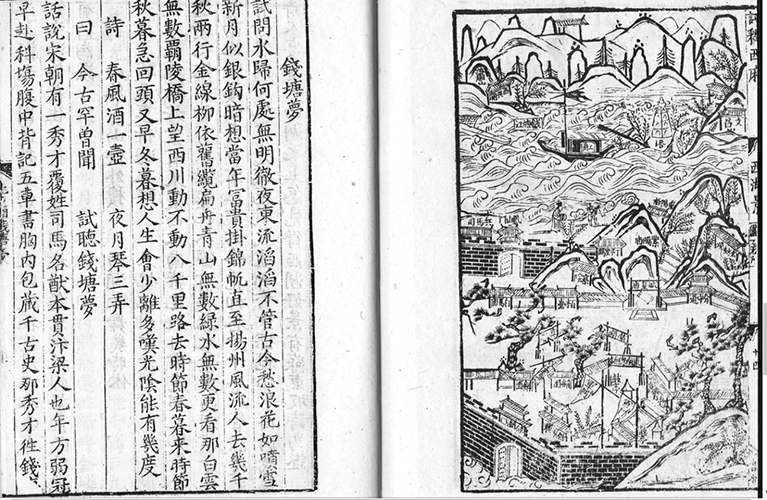 錢塘夢
試問水歸何處無明徹夜東流滔滔不管古今愁浪花如噴雪
新月似銀鈎暗想當年富貴掛錦帆直至揚州風流人去幾千
秋兩行金線柳依舊纜扁舟青山無數綠水無數更看那白雲
無數霸陵橋上望西川動不動八千里路去時節春暮来時節
秋暮急回頭又早冬暮想人生會少離多嘆光陰能有幾度
詩 春風酒一壺 夜月琴三弄
曰 今古罕曾聞 試聽錢塘夢
話說宋朝有一秀才覆姓司馬名猷本貫汴梁人也年方弱冠
早赴科塲腹中背記五車書胸内包藏千古史那秀才徃錢